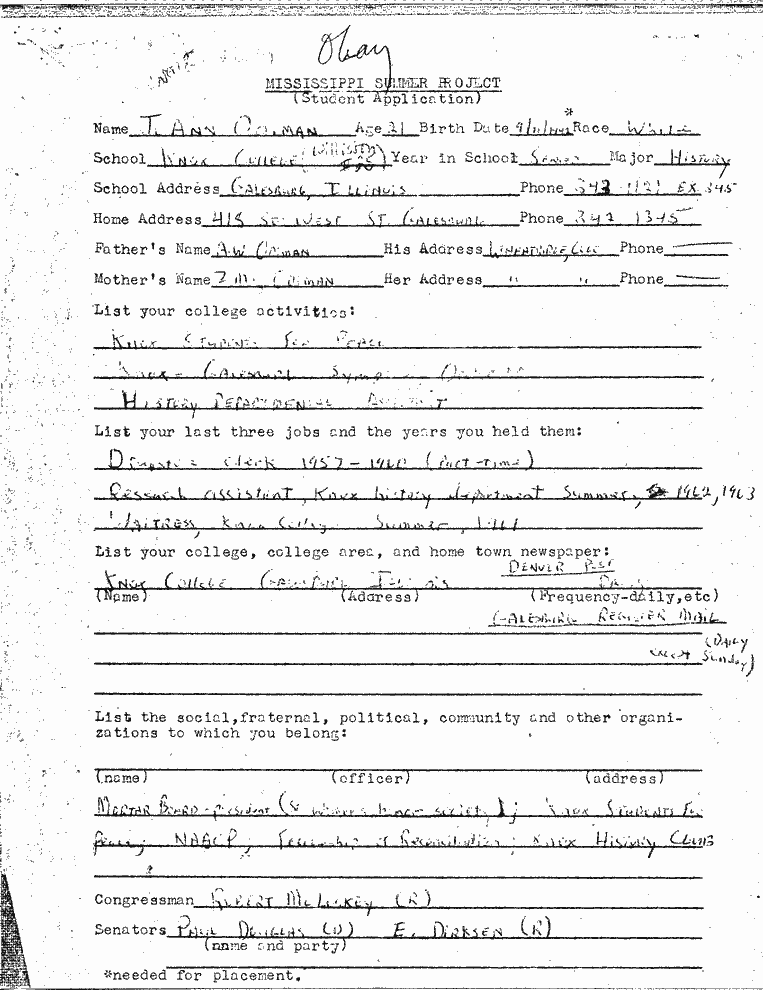 Okay
MISSISSIPPI SUMMER PROJECT
(Student Application)
*
Name J. Ann Age 21 Birth Date Race White
School Knox College Year in School Senior Major History
School Address Galesburg, Illinois Phone 343-1121 EX 345
Home Address 418 St. Galesburg Phone 342 1345
Father's Name A.W. His Address Phone
Mother's Name Her Address " " Phone
List your college activities:
Knox Students For Peace
Knox-Galesburg
History Departmental
List your last three jobs and the years you held them:
Clerk 1957-1960 (Part-time)
Research assistant, Knox history department Summer, 1962, 1963
Waitress, Knox College Summer, 1961
List your college, college area, and home town newspaper:
Denver Post
Knox College Galesburg Illinois Daily
(Name) (Address) (Frequency-daily,etc)
Galesburg Register Mail
(Daily
except Sunday)
List the social,fraternal, political, community and other organi-
zations to which you belong:
(name) (officer) (address)
Mortar Board-president (Sr women's honor society); Knox Students For
Peace; NAACP; Fellowship of Reconciliation; Knox History Club
Congressman Robert McLoskey (R)
Senators Paul Douglas (D) E. Dirksen (R)
(name and party)
*needed for placement.